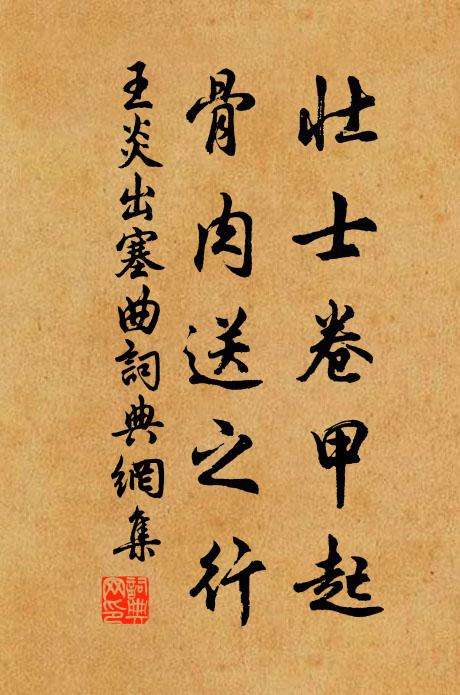 壯士卷甲起
骨肉送之行
王炎出塞曲詞典網集
詞典網印